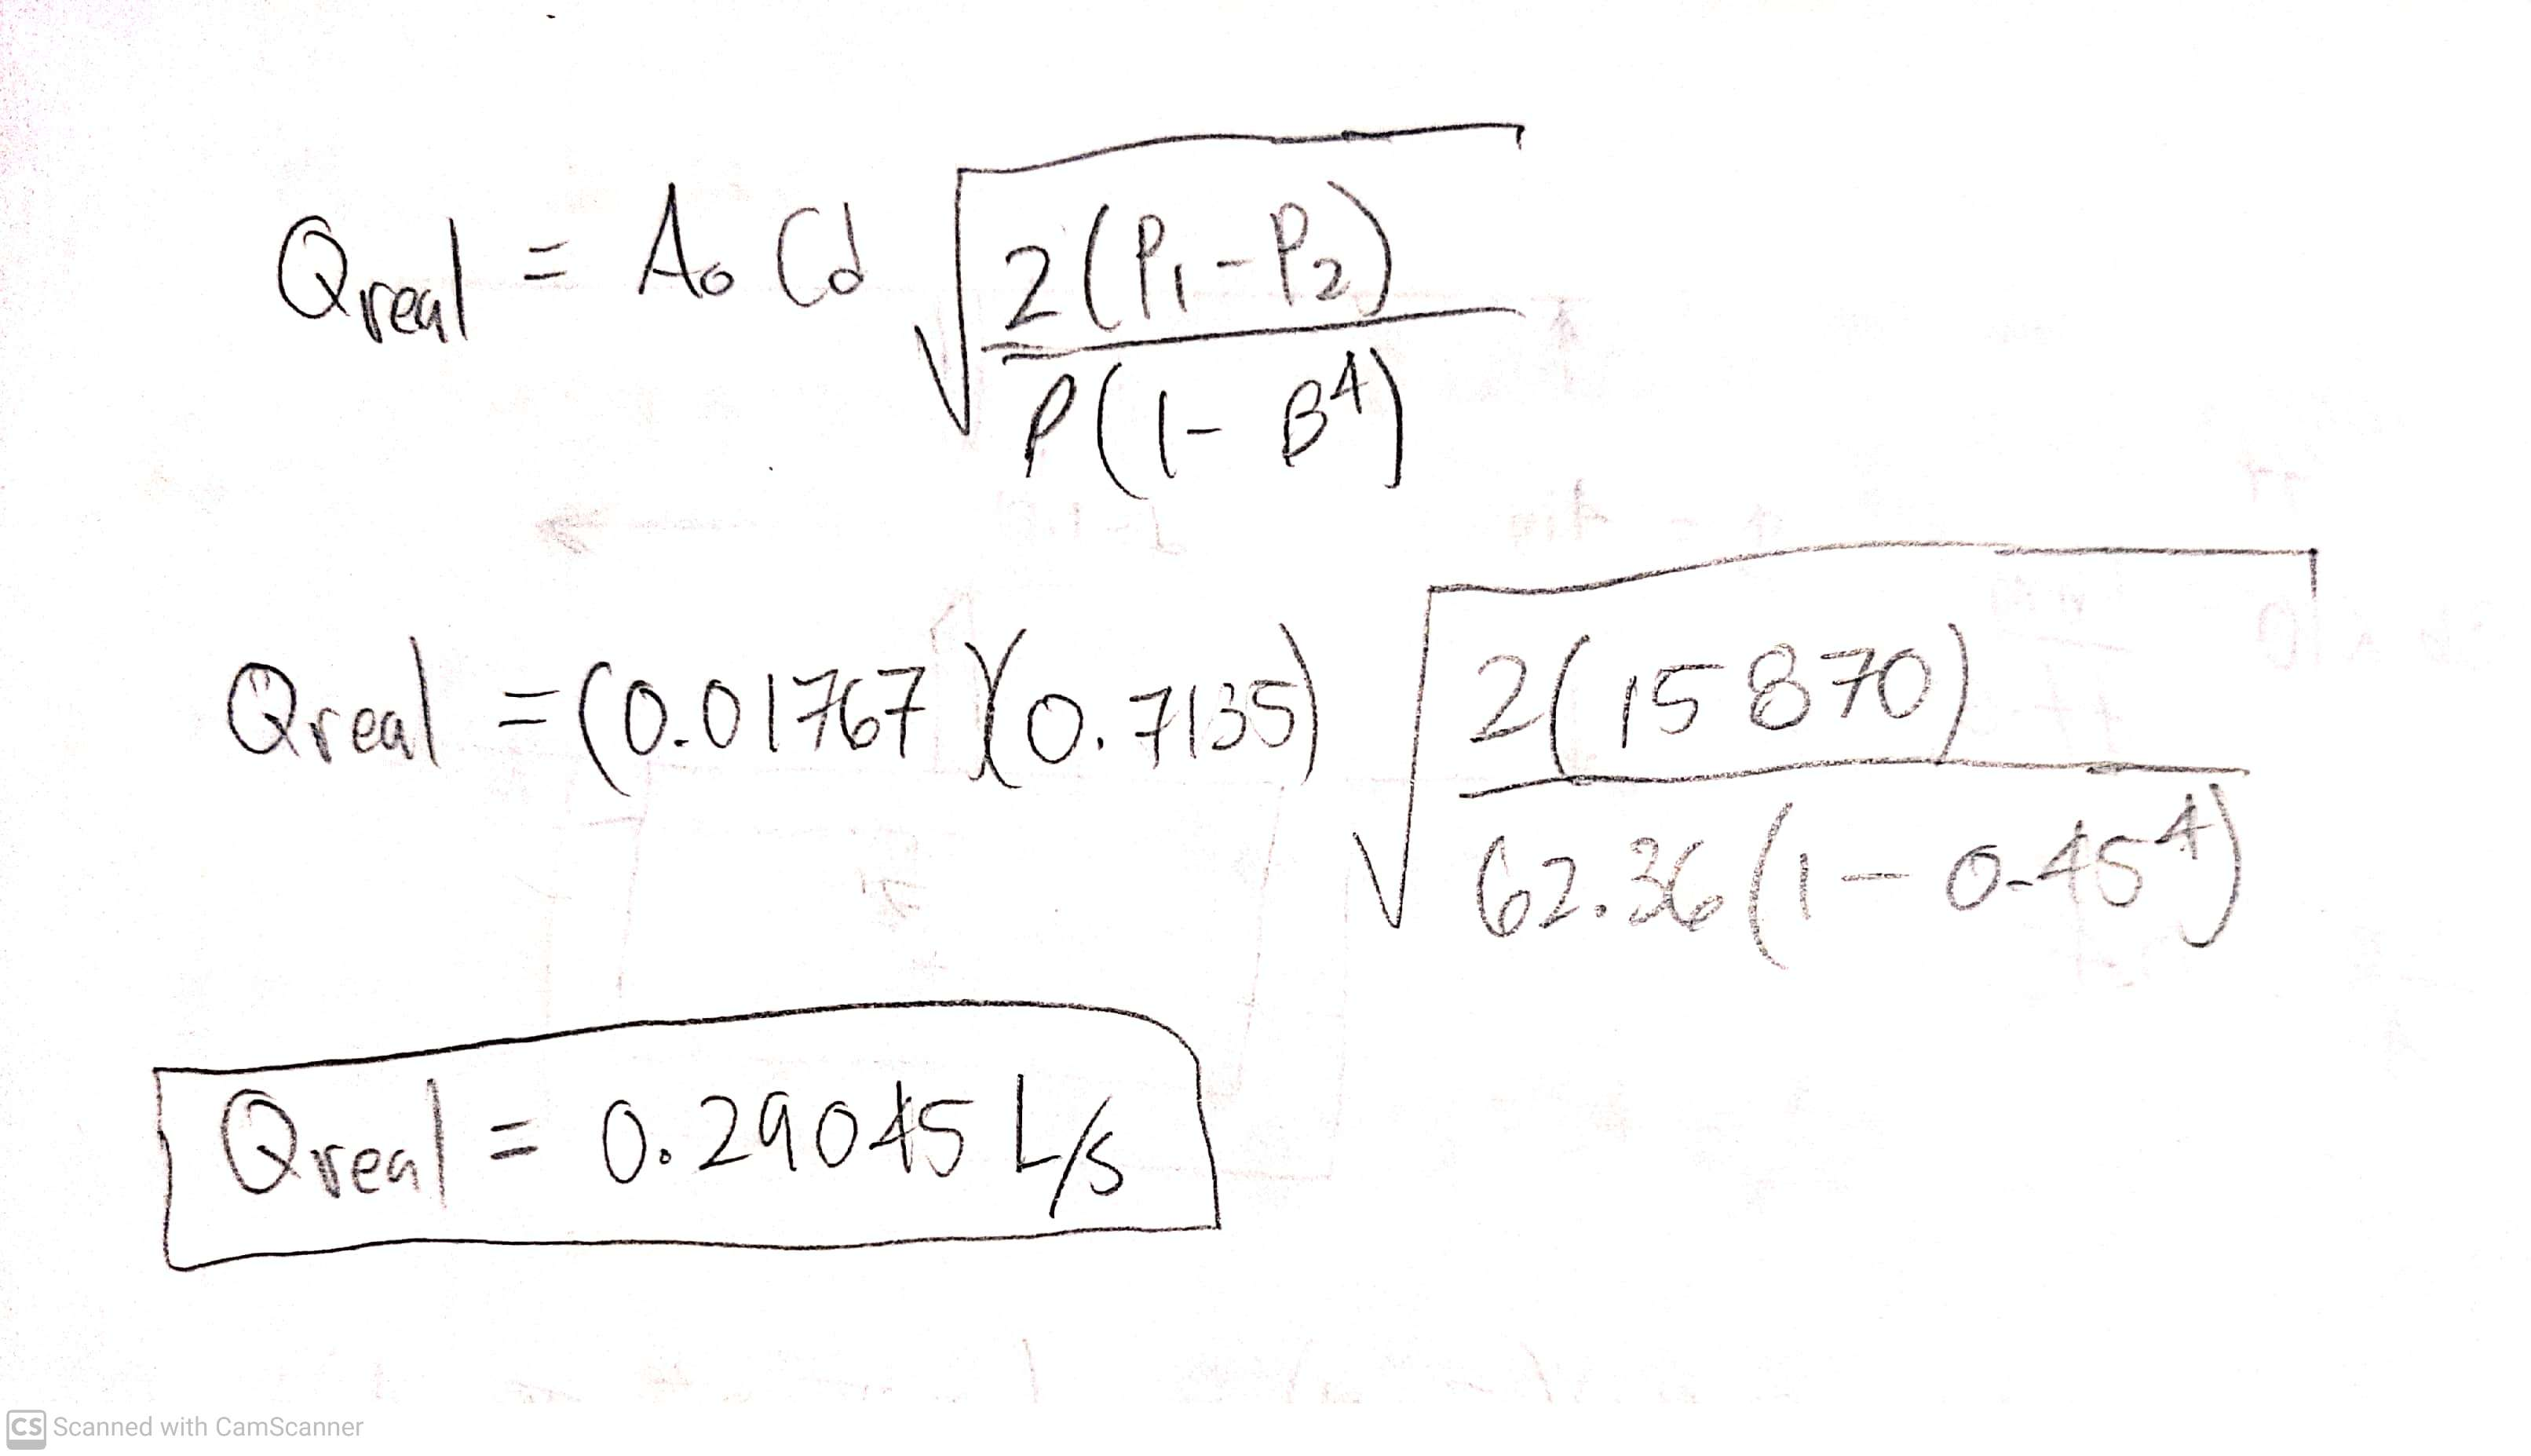 Qreal = Ao Cd √(2(P₁-P₂) / ρ(1-B⁴))
Qreal = (0.01767)(0.7135) √(2(15870) / 62.36(1-0.45⁴))
Qreal = 0.29045 L/s
CS Scanned with CamScanner